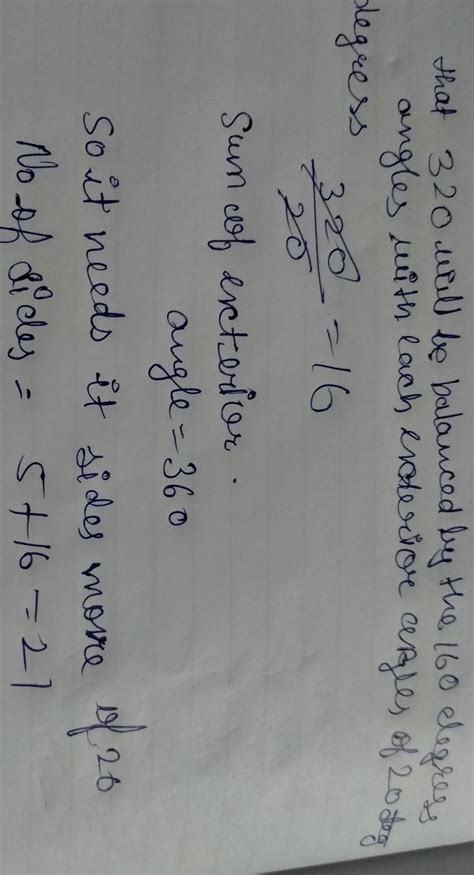 that 320 will be balanced by the 160 degress
angles with each exterior angles of 20 deg
degress
320/20 = 16
Sum of exterior
angle = 360
So it needs it sides more of 20
No of sides = 5 + 16 = 21